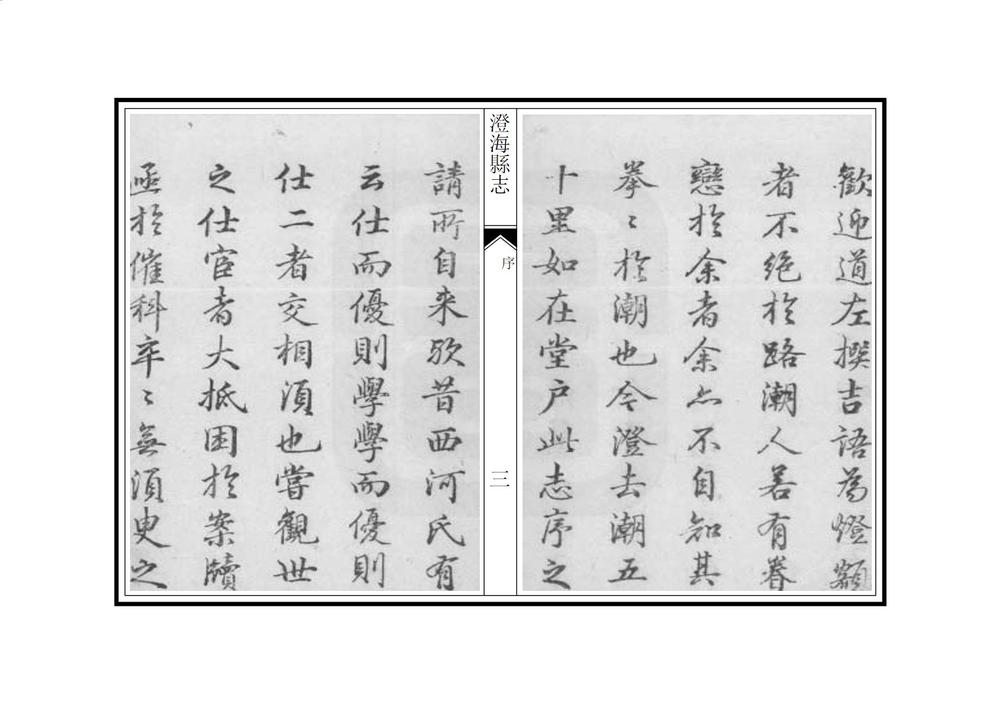 歡迎道左撰吉語為燈額
者不絕於路潮人若有眷
戀於余者余亦不自知其
拳〻於潮也今澄去潮五
十里如在堂户此志序之
澄海縣志
序
三
請所自来欤昔西河氏有
云仕而優則學學而優則
仕二者交相須也嘗觀世
之仕宦者大抵困於案牘
亟於催科卒〻無須臾之